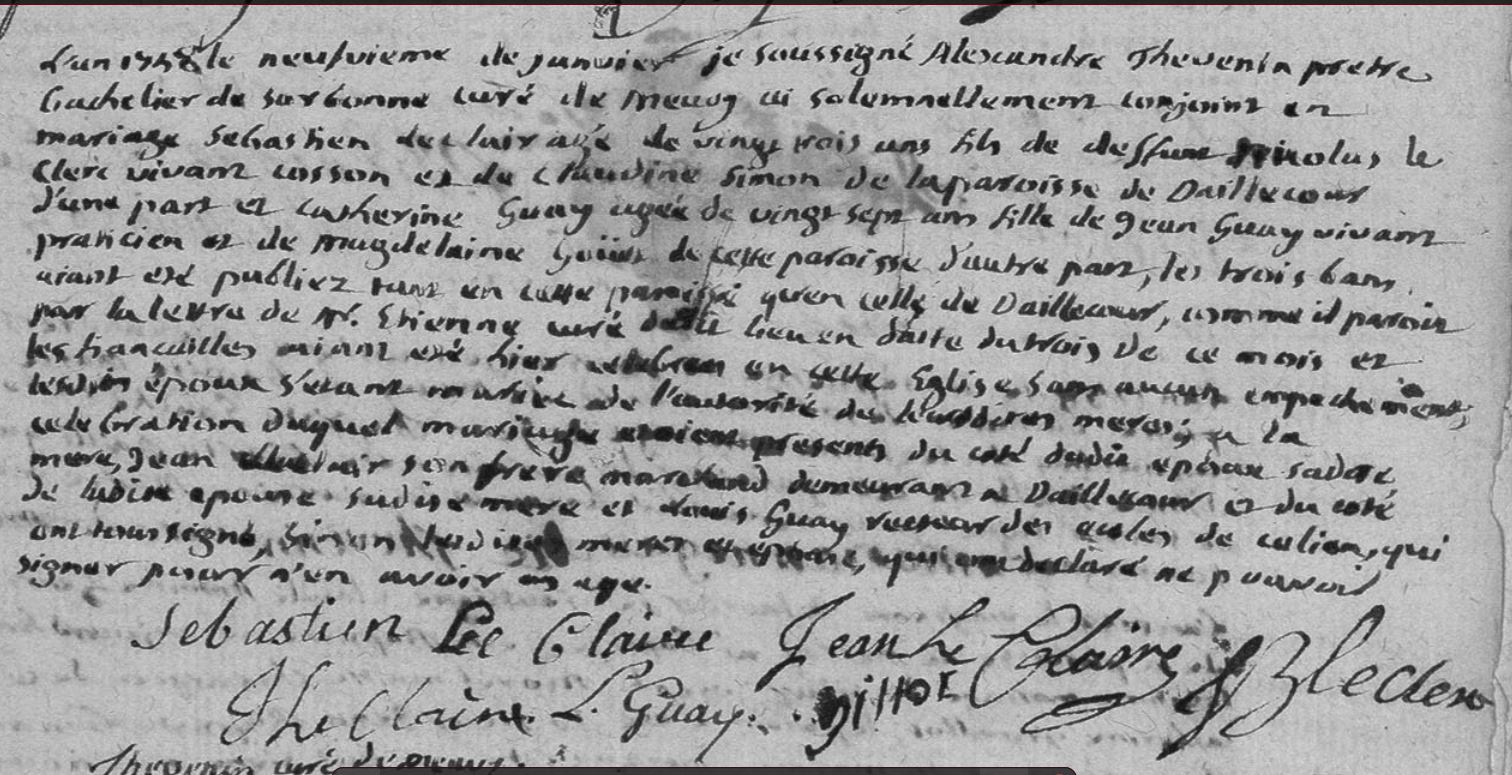 L'an 1748 le neufvieme de janvier je soussigné Alexandre Thevenin pretre
bachelier de sorbonne curé de Meuvy ai solemnellement conjoint en
mariage Sebastien leclair agé de vingt trois ans fils de deffunt Nicolas le
Clerc vivant cosson et de Claudine Simon de la paroisse de Daillecour
d'une part et Catherine Guay agée de vingt sept ans fille de Jean Guay vivant
praticien et de Magdelaine de cette paroisse d'autre part, les trois bans
aiant eté publiez tant en cette paroisse qu'en celle de Daillecour, comme il paroit
par la lettre de Mr. Etienne curé dudit lieu en datte du trois de ce mois et
les fiancailles aiant eté hier celebrees en cette Eglise sans aucun empechement,
lesdits époux s'etant mariés de l'autorité de leursdites meres; a la
celebration duquel mariage etoient presents du coté dudit epoux sadite
mere, Jean leclair son frere marchand demeurant a Daillecour et du coté
de ladite epouse sadite mere et Louis Guay recteur des ecoles de ce lieu, qui
ont tous signé, sinon lesdites meres et epouse, qui ont declaré ne pouvoir
signer pour n'en avoir us age.
Sebastien Le Claire Jean Le Claire Leclerc
J Le Claire L Guay. gillot
Thevenin curé de Meuvy.